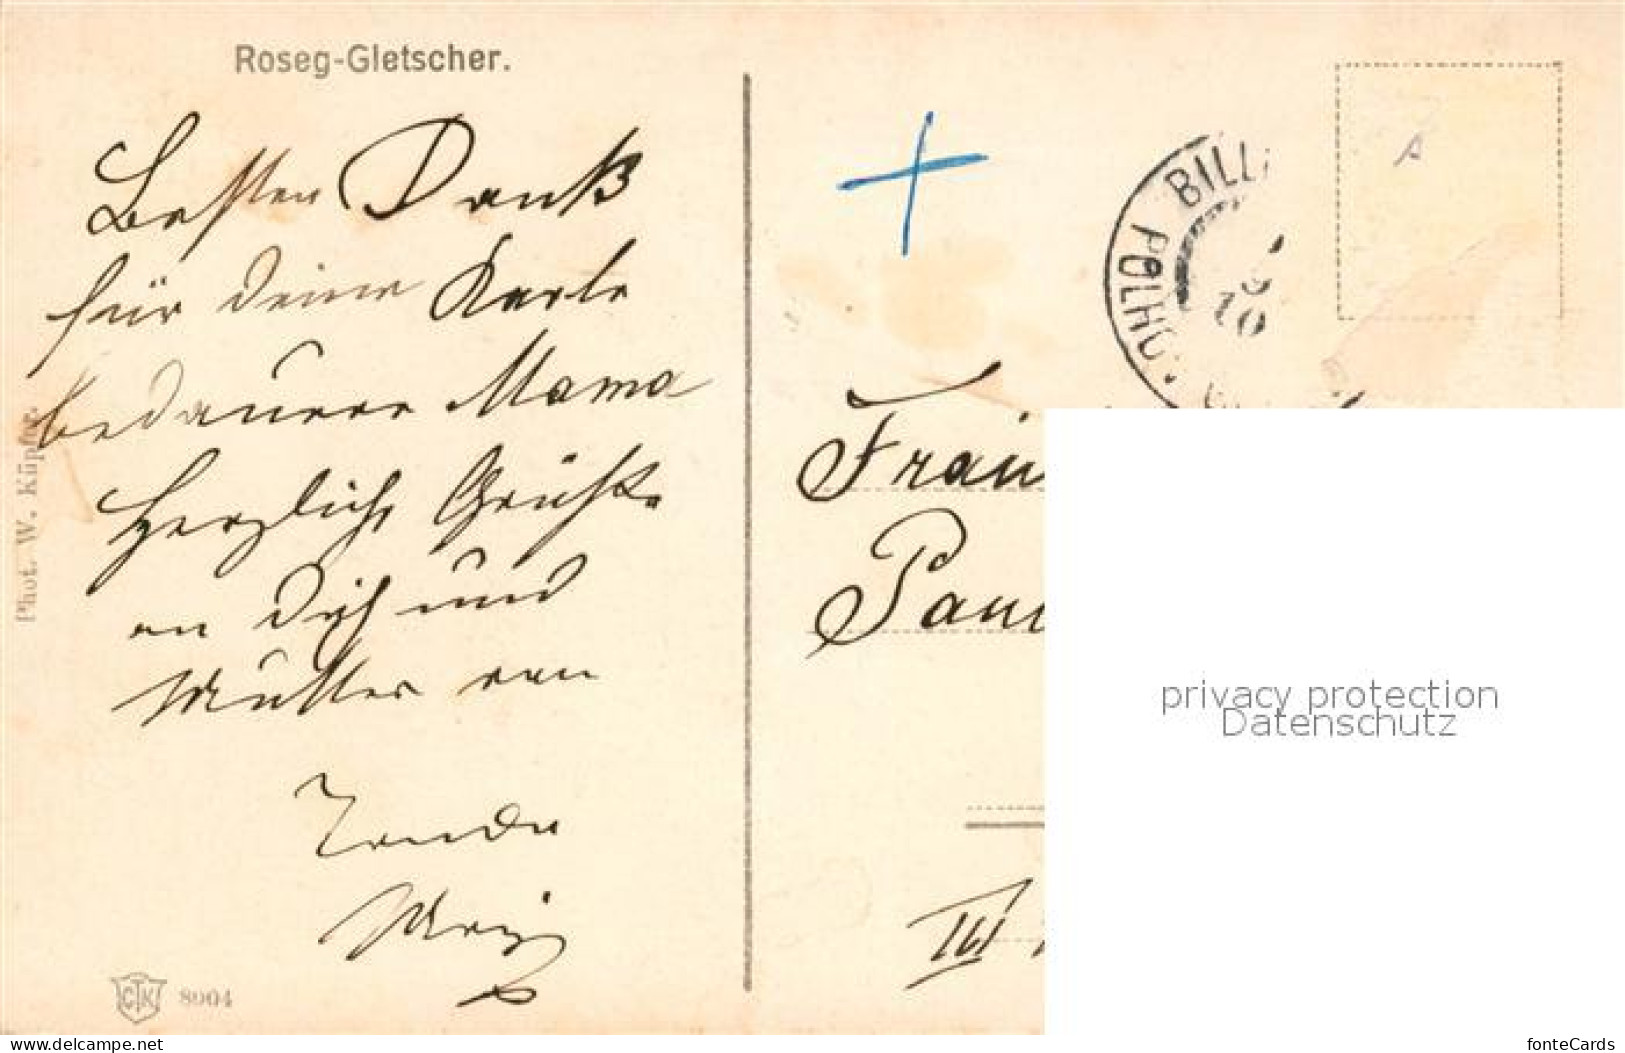 Roseg-Gletscher.
Besten Dank
für deine Karte
bedauere Mama
Herzliche Grüße
an Dich und
Mutter von
Phot. W. Küpfer
CTK 8904
BILL
POLHO
10
Fräu
Pau
III
privacy protection
Datenschutz
www.delcampe.net
fonteCards